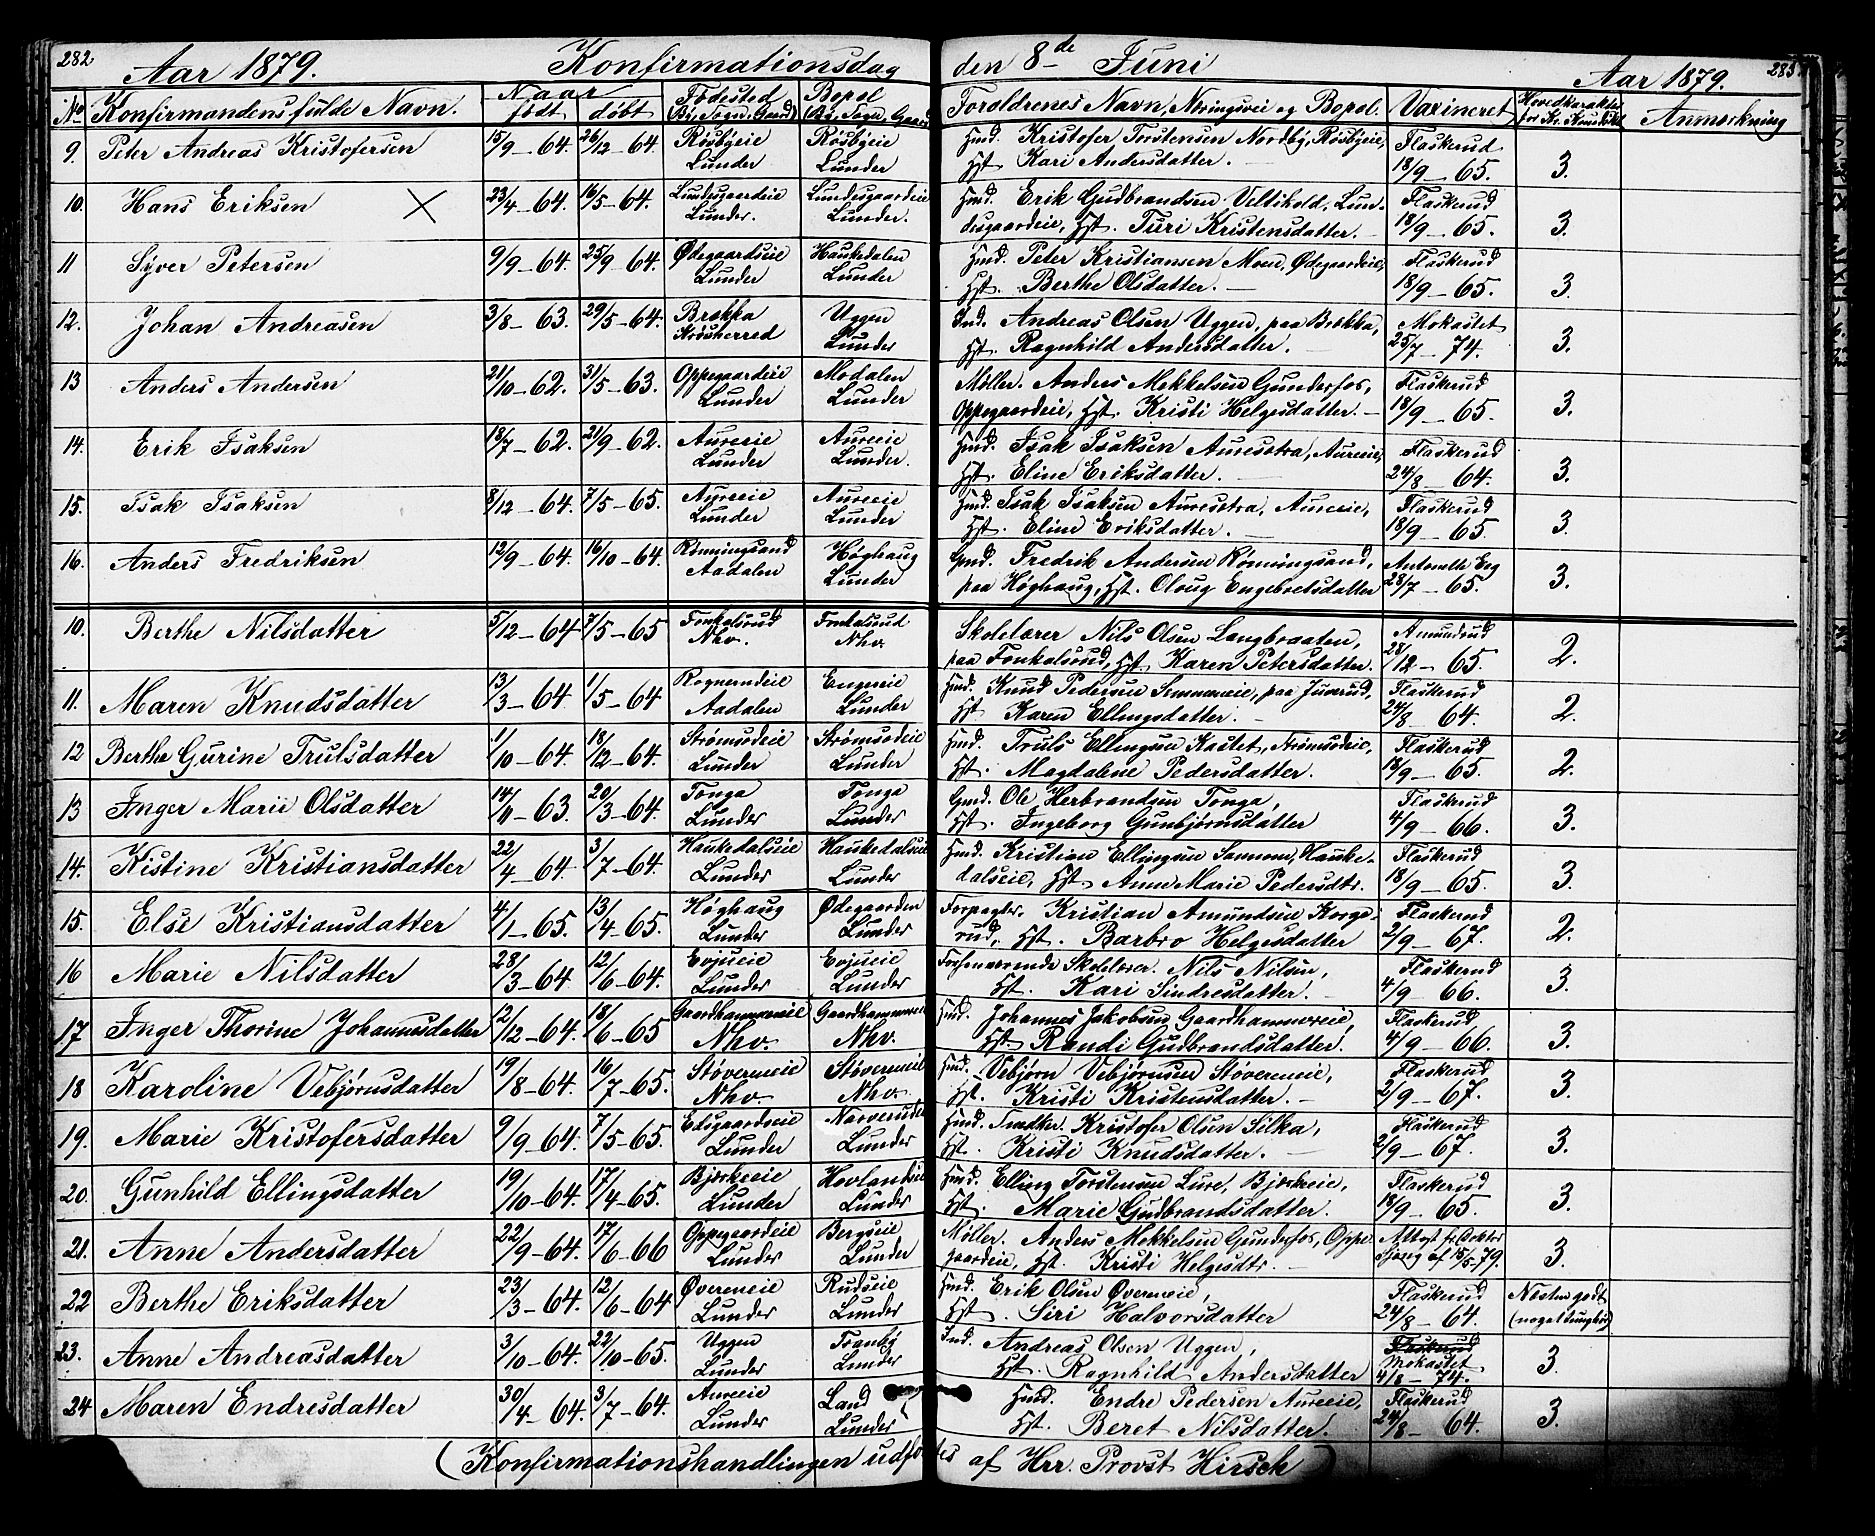 282
Aar 1879. Konfirmationsdag den 8de Juni Aar 1879. 283
No Konfirmandens fulde Navn. Naar født døbt Fødested (By, Sogn, Gaard) Bopel (By, Sogn, Gaard) Foreldrenes Navn, Næringsvei og Bopel. Vaxineret Hovedkarakter for Kr. Kundskab Anmerkning
9. Peter Andreas Kristofersen 15/9-64. 26/12-64. Røsbyeie Røsbyeie Hmd. Kristofer Torstensen Nordby, Røsbyeie, Flaskerud
Lunder Lunder Hst. Kari Andersdatter. 18/9-65. 3.
10. Hans Eriksen X 23/4-64. 16/5-64. Lundesgaardeie Lundesgaardeie Hmd. Erik Gudbrandsen Veltihold, Lun- Flaskerud
Lunder. Lunder. desgaardeie, Hst. Turi Kristensdatter. 18/9-65. 3.
11 Syver Petersen 9/9-64. 25/9-64. Ødegaardseie Haukedalen Hmd. Peter Kristiansen Moen, Ødegaardeie, Flaskerud
Lunder Lunder Hst. Berthe Olsdatter. 18/9-65. 3.
12. Johan Andreasen 3/8-63. 29/5-64. Brekka Uggen Ind. Andreas Olsen Uggen, paa Brekka, Mokastet
Krødsherred Lunder Hst. Ragnhild Andersdatter. 25/7-74. 3.
13 Anders Andersen 21/10-62. 31/5-63. Oppegaardeie Modalen Møller. Anders Mekkelsen Gunderfos, Flaskerud
Lunder Lunder Oppegaardeie, Hst. Kristi Helgesdatter. 18/9-65. 3.
14. Erik Isaksen 18/7-62. 21/9-62. Aureeie Aureeie Hmd. Isak Isaksen Auresetra, Aureeie, Flaskerud
Lunder Lunder. Hst. Eline Eriksdatter. 24/8-64. 3.
15. Isak Isaksen 8/12-64. 7/5-65. Aureeie Aureeie Hmd. Isak Isaksen Auresetra, Aureeie, Flaskerud
Lunder Lunder Hst. Eline Eriksdatter. 18/9-65. 3.
16. Anders Fredriksen 12/9-64. 16/10-64. Rønningsand Høghaug Gmd. Fredrik Andersen Rønningsand, Antonette Eng
Aadalen Lunder paa Høghaug, Hst. Oloug Engebretsdatter 28/7-65. 3.
10. Berthe Nilsdatter 5/12-64 7/5-65 Fonkalsrud Fonkalsrud Skolelærer Nils Olsen Langbraaten, Amundrud
Nho. Nho. paa Fonkalsrud, Hst. Karen Petersdatter. 28/12-65. 2.
11. Maren Knudsdatter 13/3-64 1/5-64 Rognerudeie Engereie Hmd. Knud Pedersen Semmeneie, paa Juverud, Flaskerud
Aadalen Lunder Hst Karen Ellingsdatter. 24/8-64. 2.
12 Berthe Gurine Trulsdatter 1/10-64. 18/12-64. Strømsødeie Strømsødeie Hmd. Truls Ellingsen Kastet, Strømsødeie, Flaskerud
Lunder Lunder Hst. Magdalene Pedersdatter. 18/9-65. 2.
13 Inger Marie Olsdatter 14/11-63. 20/3-64. Tonga Tonga Gmd. Ole Herbrandsen Tonga, Flaskerud
Lunder Lunder Hst. Ingeborg Gunbjørnsdatter 4/9-66. 3.
14. Kistine Kristiansdatter 22/4-64. 3/7-64. Haukedalseie Haukedalseie Hmd. Kristian Ellingsen Sannom, Hauke- Flaskerud
Lunder Lunder dalseie, Hst. Anne Marie Pedersdtr. 18/9-65. 3.
15. Else Kristiansdatter 4/1-65. 13/4-65. Høghaug Ødegaarden Forpagter. Kristian Amundsen Korge- Flaskerud
Lunder Lunder rud, Hst. Barbro Helgesdatter 2/9-67. 2.
16 Marie Nilsdatter 28/3-64 12/6-64. Evjueie Evjueie Forhenværende Skolelærer. Nils Nilsen, Flaskerud
Lunder Lunder Hst. Kari Sindresdatter. 4/9-66. 3.
17 Inger Thorine Johannesdatter 12/12-64. 18/6-65 Gaardhammereie Gaardhammereie Hmd. Johannes Jakobsen Gaardhammereie, Flaskerud
Nho. Nho. Hst. Randi Gudbrandsdatter. 4/9-66. 3.
18 Karoline Vebjørnsdatter 19/8-64. 16/7-65. Støvereneie Støvereneie Hmd. Vebjørn Vebjørnsen Støvereneie, Flaskerud
Nho. Nho. Hst. Kristi Kristensdatter. 2/9-67. 3.
19. Marie Kristofersdatter 9/9-64. 7/5-65. Elsgaardseie Narverudeie Hmd. Snedker. Kristofer Olsen Silka, Flaskerud
Lunder Lunder Hst. Kristi Knudsdatter. 2/9-67. 3.
20. Gunhild Ellingsdatter 19/10-64. 17/4-65. Bjerkeeie Hovlandseie Hmd. Elling Torstensen Lure, Bjerkeie, Flaskerud
Lunder Lunder Hst. Marie Gudbrandsdatter. 18/9-65. 3.
21. Anne Andersdatter 22/9-64. 17/6-66 Oppegaardeie Bergseie Møller. Anders Mekkelsen Gunderfos, Oppe- Attest fr. Doktor
Lunder Lunder gaardeie, Hst. Kristi Helgesdtr. af 15/5-79. 3.
22 Berthe Eriksdatter 23/3-64. 12/6-64 Øvereneie Rudseie Hmd. Erik Olsen Øvereneie, Flaskerud Næsten godt
Lunder Lunder Hst. Siri Halvorsdatter 24/8-64. (noget tunghør)
23. Anne Andreasdatter 3/10-64. 22/10-65. Uggen Tranby Ind. Andreas Olsen Uggen, Flaskerud
Lunder Lunder Hst. Ragnhild Andersdatter Mokastet 4/8-74. 3.
24 Maren Endresdatter 30/4-64. 3/7-64. Aureeie Land Hmd. Endre Pedersen Aureeie, Flaskerud
Lunder Lunder Hst. Beret Nilsdatter. 24/8-64. 3.
(Konfirmationshandlingen udførtes af Hrr. Provst Hirsch)